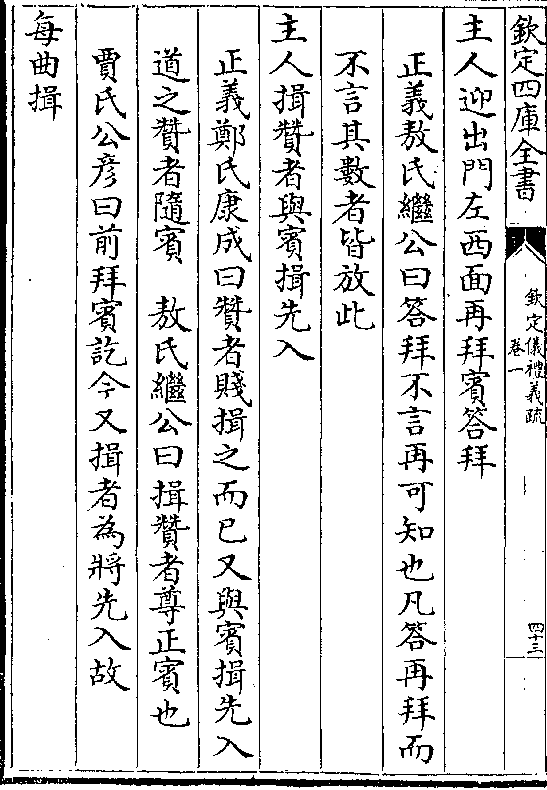 欽定四庫全書
欽定儀禮義疏
卷一
四十三
主人迎出門左西面再拜賓答拜
正義敖氏繼公曰答拜不言再可知也凡答再拜而
不言其數者皆放此
主人揖贊者與賓揖先入
正義鄭氏康成曰贊者賤揖之而已又與賓揖先入
道之贊者隨賓 敖氏繼公曰揖贊者尊正賓也
賈氏公彦曰前拜賓訖今又揖者為將先入故
每曲揖